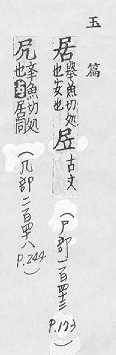 玉篇
居 舉魚切処也安也 𡨢 古文 (尸部一百四十三 P.173)
凥 舉魚切処也与居同 (几部二百四十八 P.244)